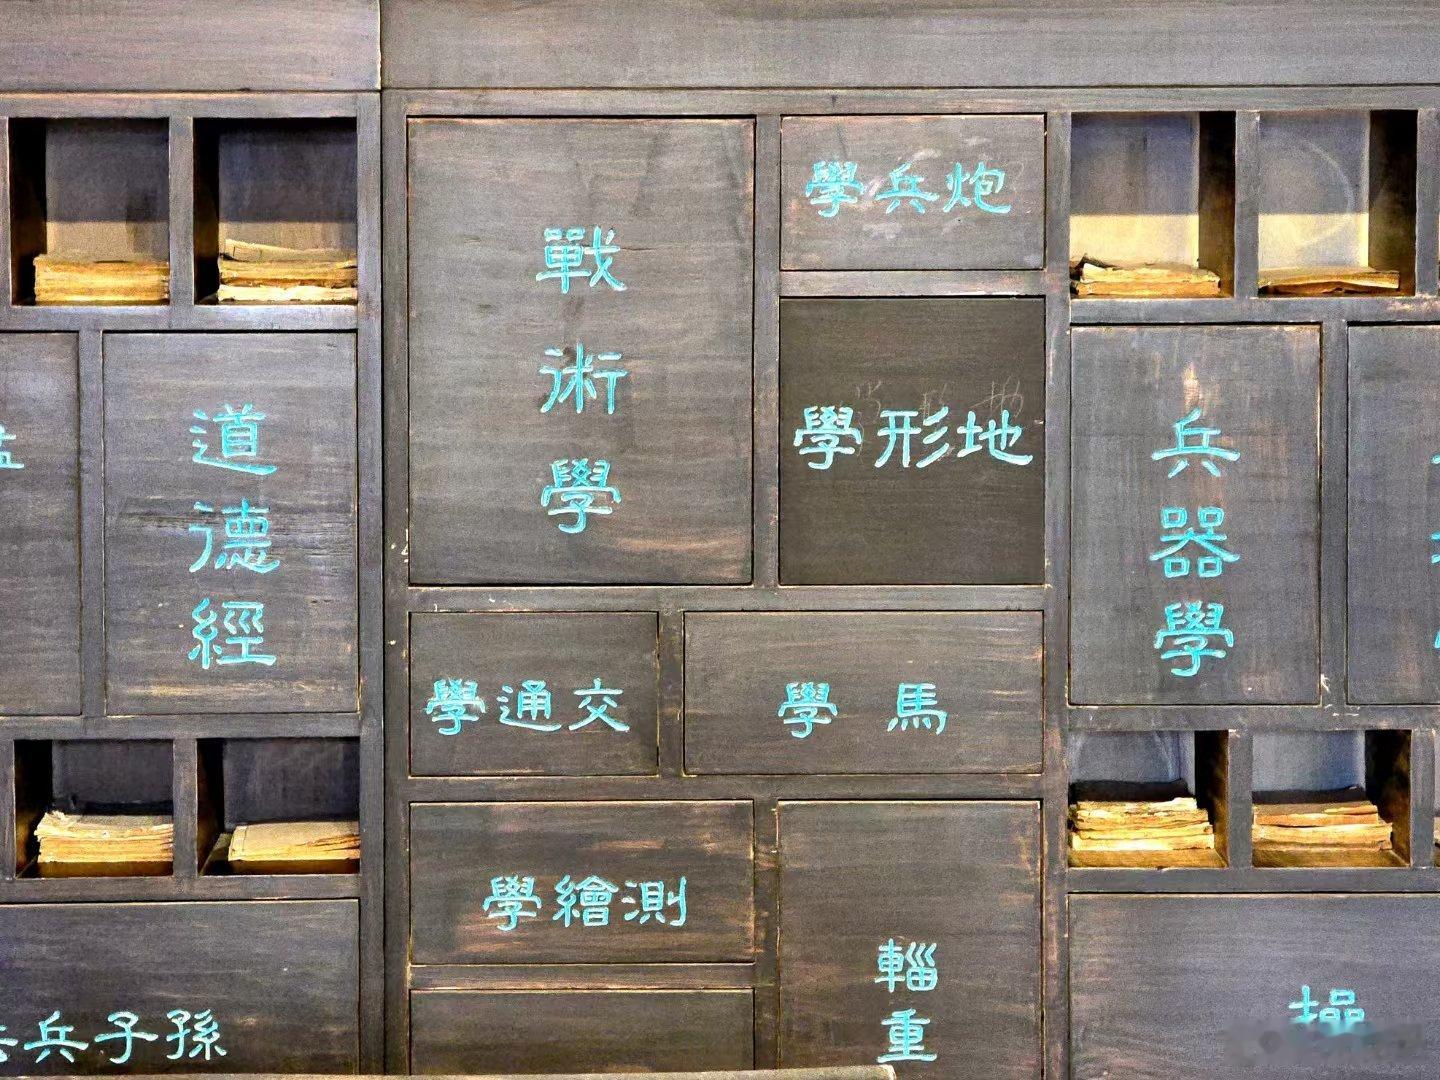 戰術學
炮兵學
地形學
道德經
兵器學
交通學
馬學
測繪學
輜重
孫子兵
操